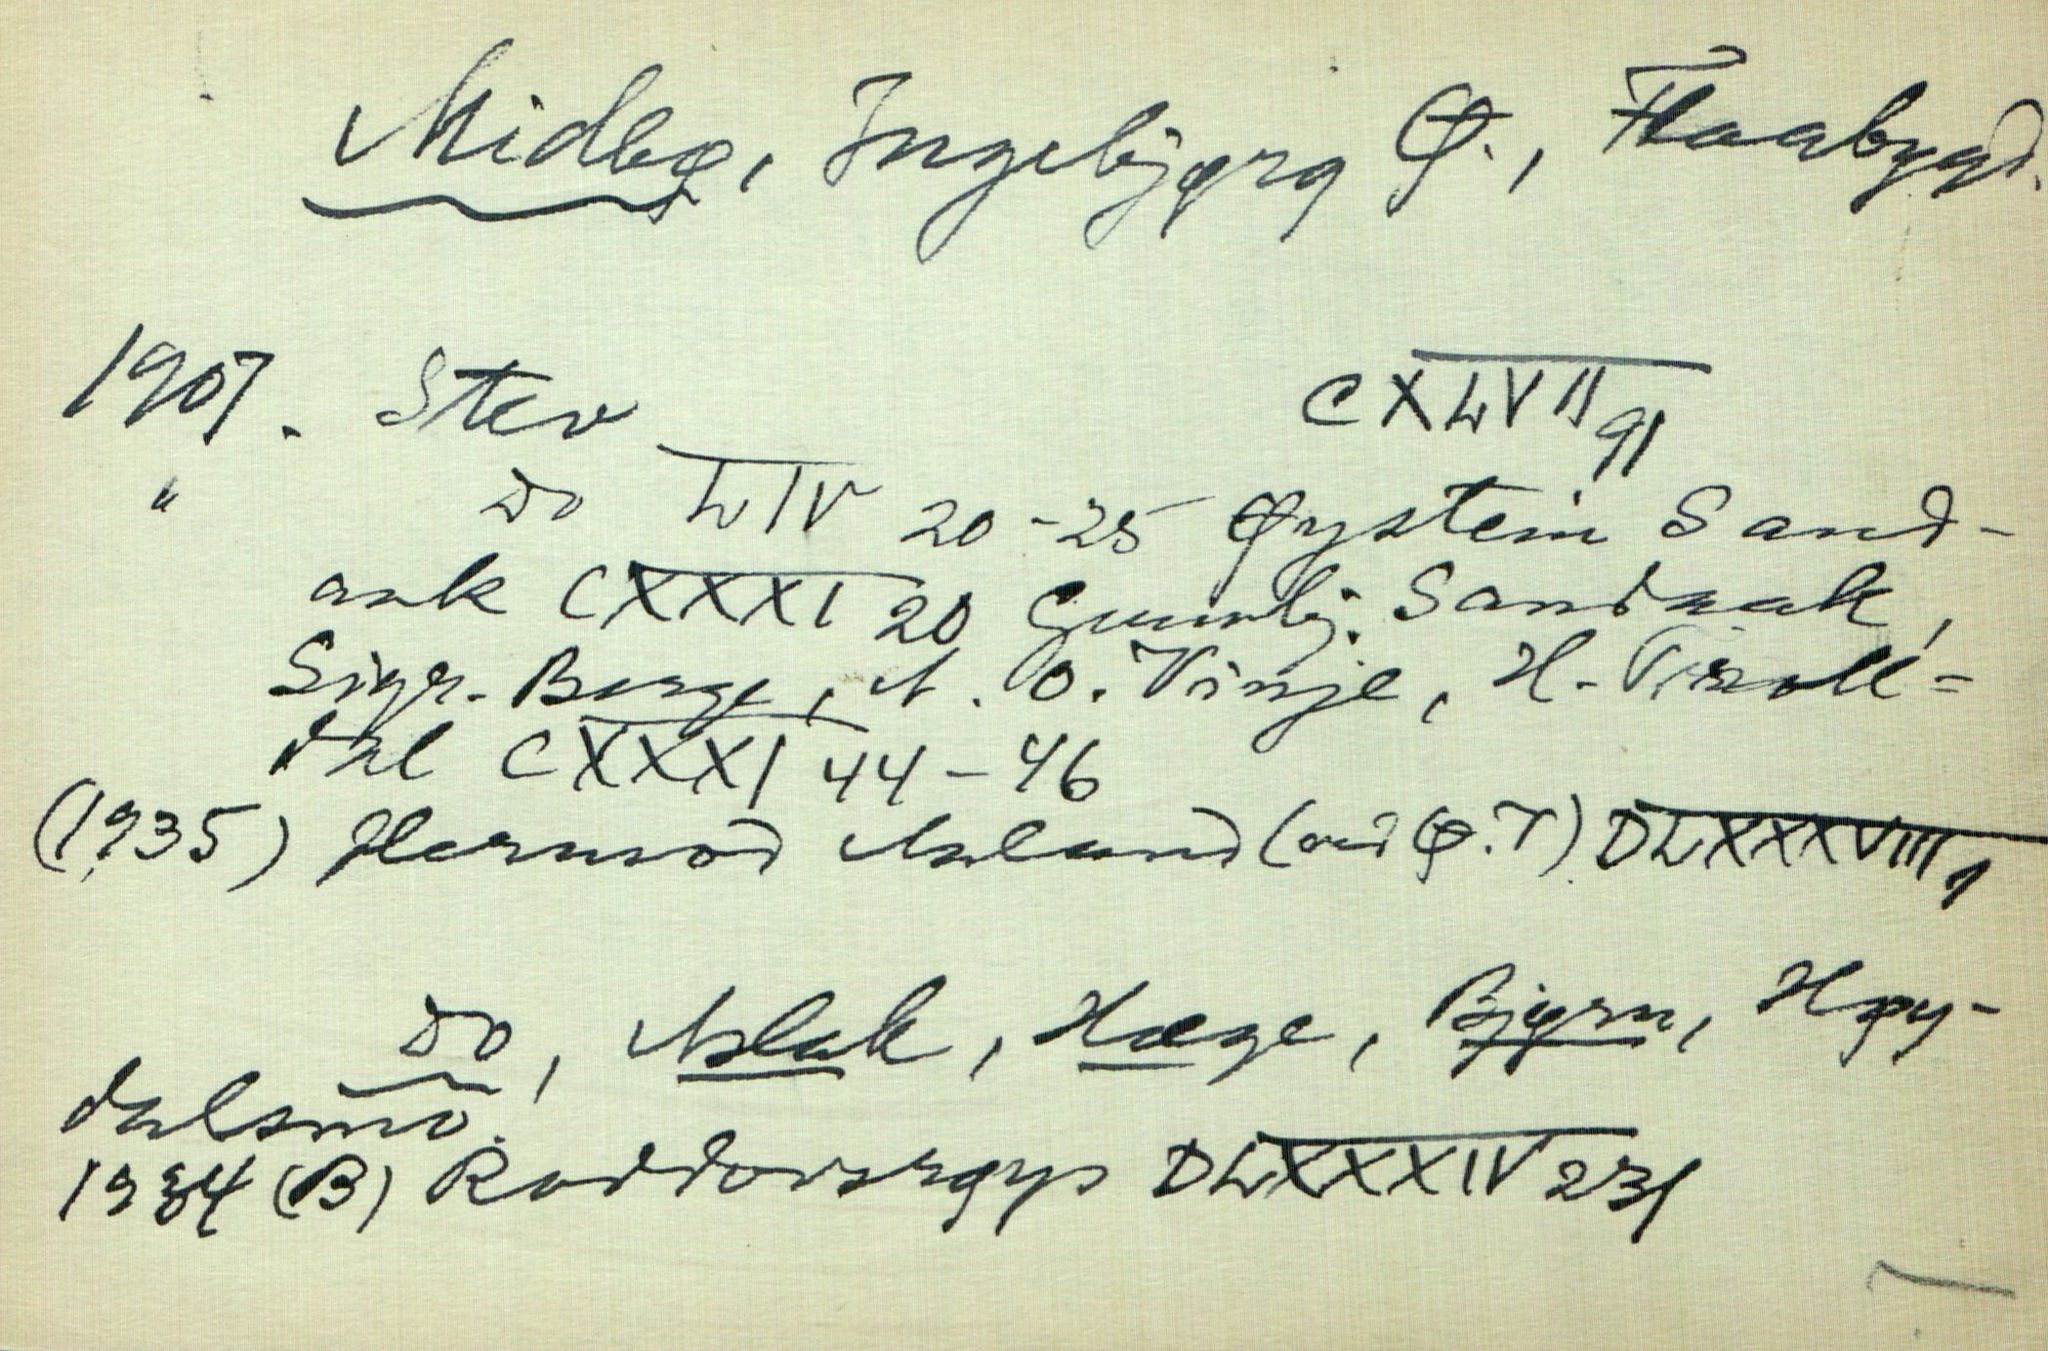 Midbø, Ingebjørg Ø., Flaabygd.
1907. Stev CXLVII 91
" Do LIV 20-25 Øystein Sand-
aak CXXXI 20 Gunnbj. Sandaak,
Sigr. Borge, A. O. Vinje, H.
dal CXXXI 44-46
(1935) Hermod Aslund (ved Ø.T) DLXXXVIII 1
Do, Aslak, Hæge, Bjørn, Høy-
dalsmo.
1934 (B) DLXXXIV 231